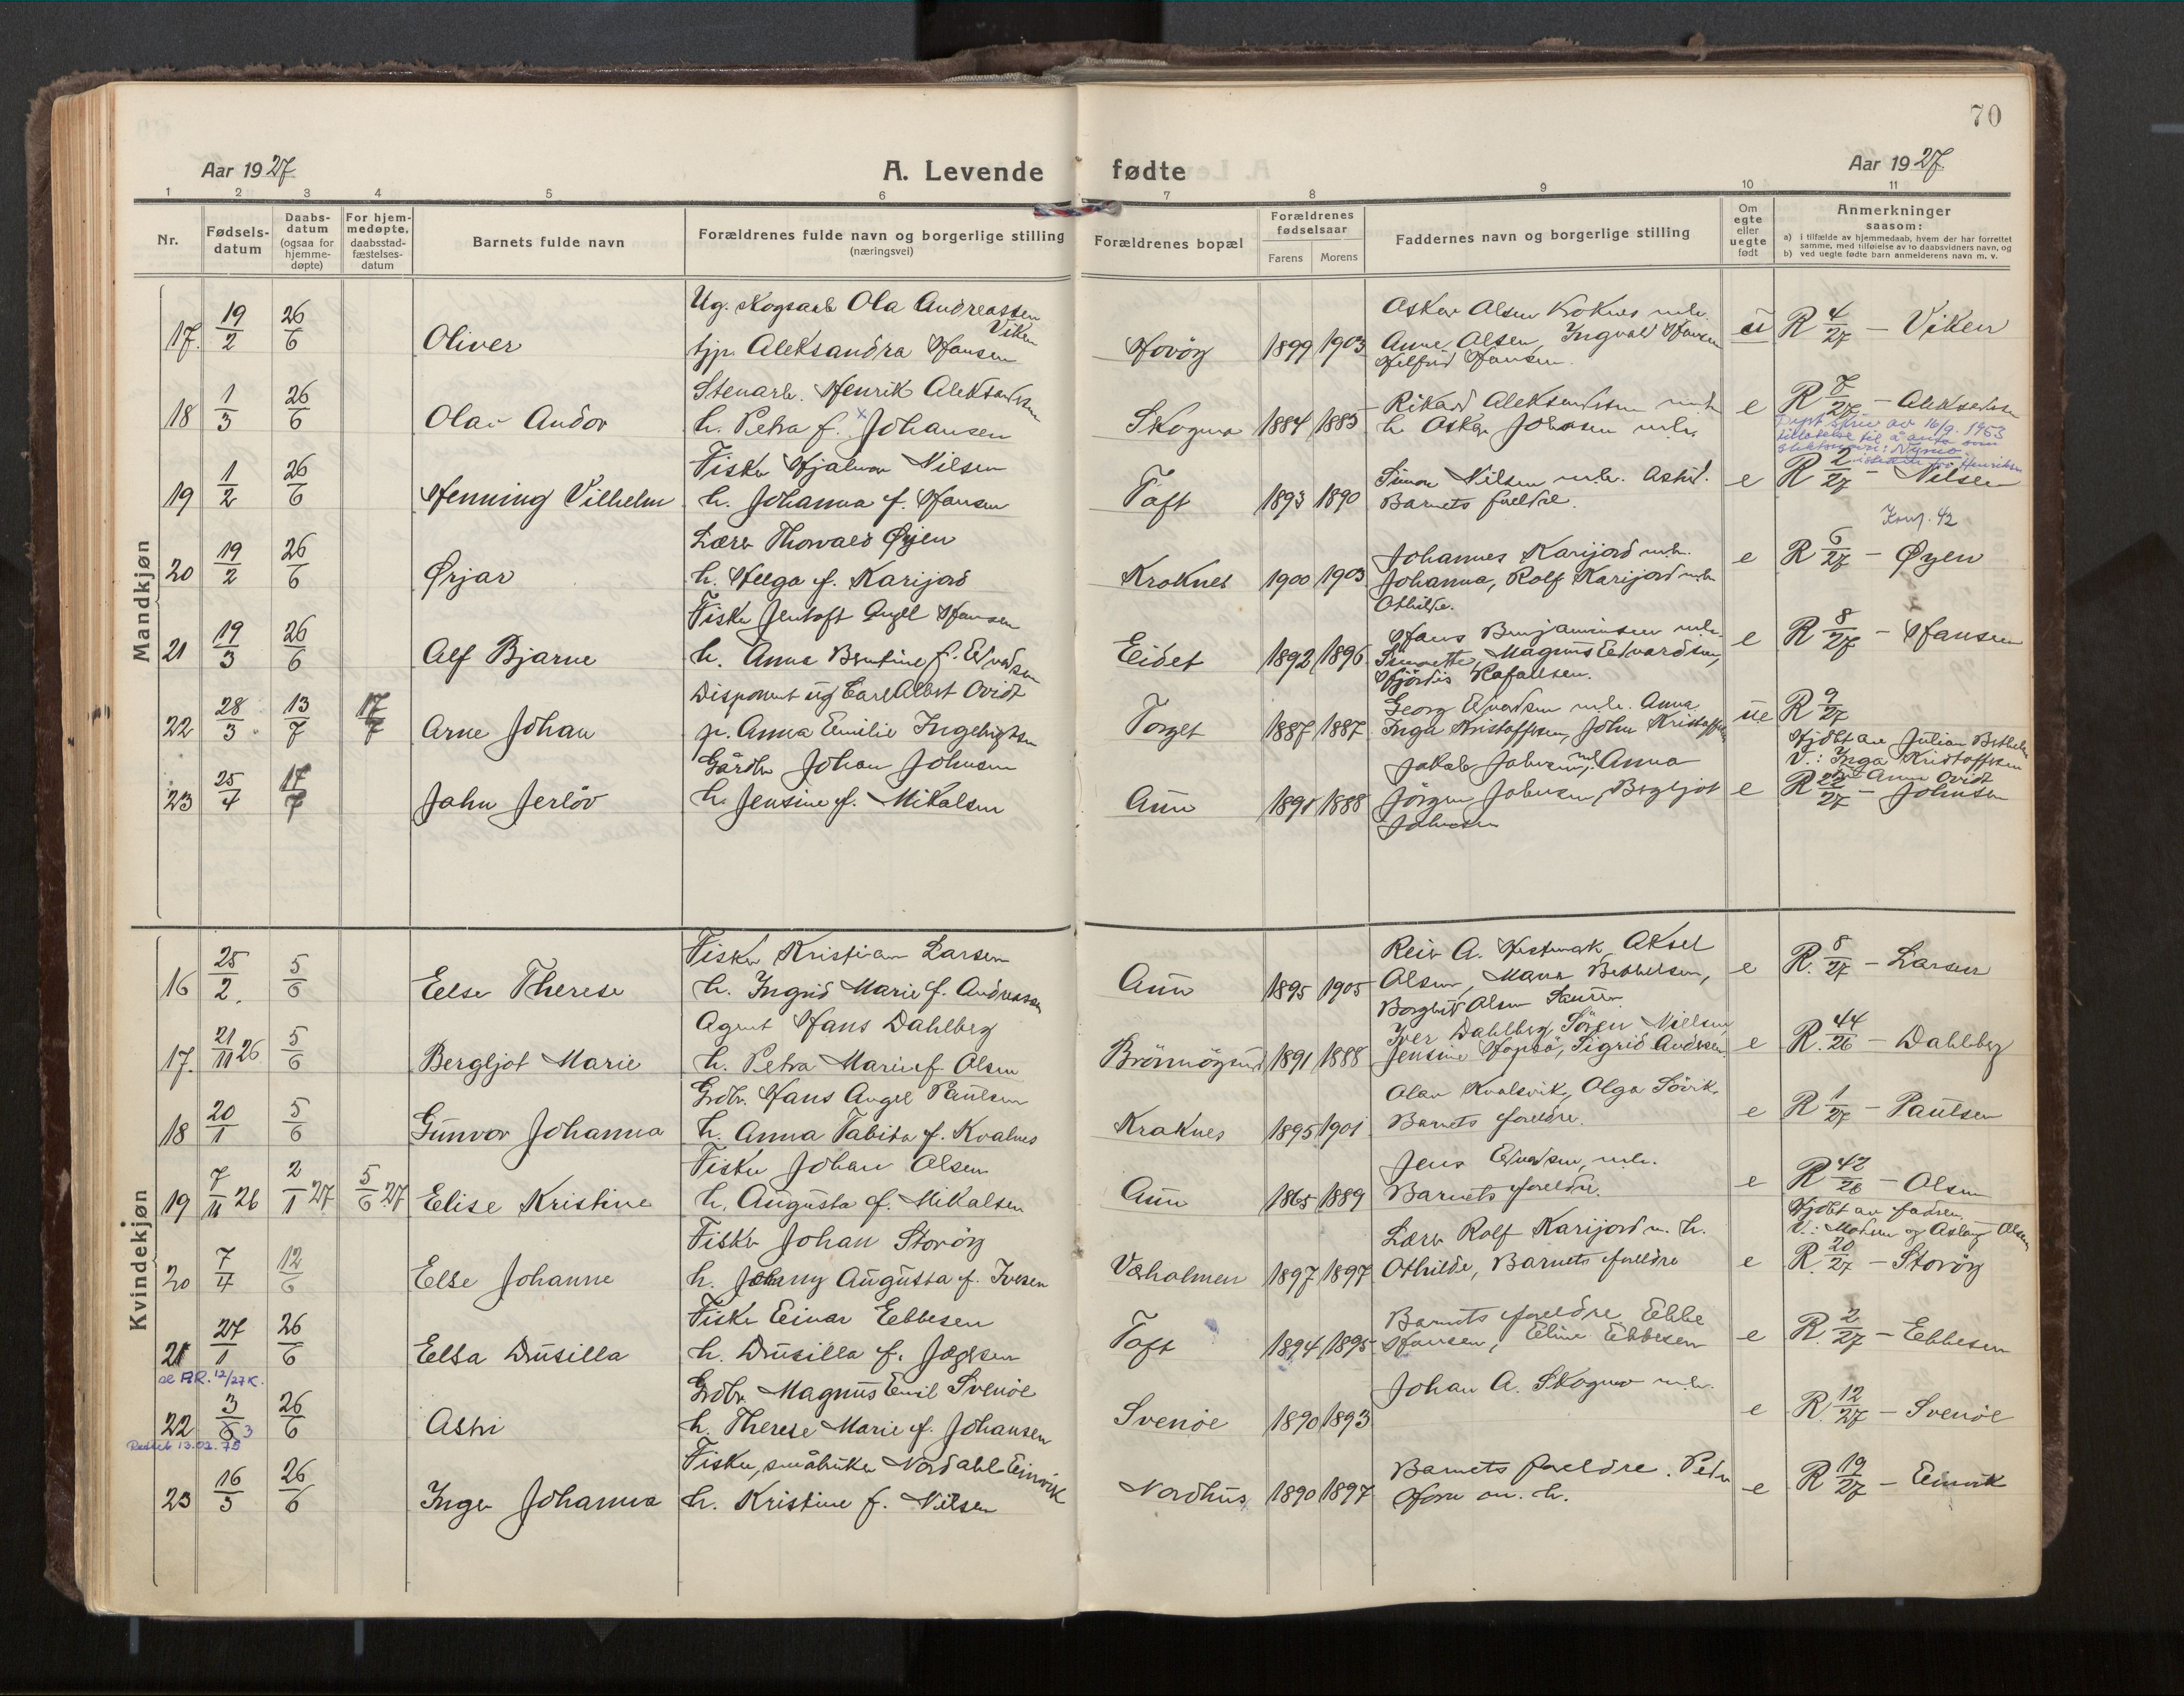 70
Aar 1927
A. Levende fødte
Aar 1927
1 2 3 4 5 6 7 8 9 10 11
Nr.
Fødsels-
datum
Daabs-
datum
(ogsaa for
hjemme-
døpte)
For hjem-
medøpte,
daabsstad-
fæstelses-
datum
Barnets fulde navn
Forældrenes fulde navn og borgerlige stilling
(næringsvei)
Forældrenes bopæl
Forældrenes
fødselsaar
Farens Morens
Faddernes navn og borgerlige stilling
Om
egte
eller
uegte
født
Anmerkninger
saasom:
a) i tilfælde av hjemmedaab, hvem der har forrettet
samme, med tilføielse av to daabsvidners navn, og
b) ved uegte fødte barn anmelderens navn m. v.
Mandkjøn
17. 19/2 26/6 Oliver
Ug. Skogsarb Ola Andreassen
Viken
tjp. Aleksandra Hansen
Horöy 1899 1903
Askar Olsen Kroknes m.h.
Anna Olsen, Ingvald Hansen
Hansen.
ü R 4/27 - Viken
18 1/3 26/6 Olav Andor
Stenarb. Henrik Aleksandersen
h. Petra f. x Johansen
Skogmo 1884 1885
Rikard Aleksandersen m.h
h Oskar Johansen m.h.
e R 7/27 - Aleksandersen
av 16/9. 1953
tillatelse til å anta som
slektsnavn: Nymo
istedenfor Henriksen
19 1/2 26/6 Henning Vilhelm
Fisker Hjalmar Nilsen
h. Johanna f. Hansen
Toft 1893 1890
Simon Nilsen m.h. Astrid.
Barnets foreldre.
e R 2/27 - Nilsen
Konf. 42
20 19/2 26/6 Ørjar
Lærer Thorvald Øyen
h. Helga f. Karijord
Kroknes 1900 1903
Johannes Karijord m.h.
Johanna, Rolf Karijord m.h.
Othilde.
e R 6/27 - Øyen
21 19/3 26/6 Alf Bjarne
Fisker Jentoft Angell Hansen
h. Anna Bentine f. Edvardsen
Eidet 1892 1896
Hans Benjaminsen m.h.
Simonette, Magnus Edvardsen,
Hjördis Rafaelsen.
e R 8/27 - Hansen
22 28/3 13/7 17/7 Arne Johan
Disponent ug Carl Albert Ovidt
p. Anna Emilie Ingebrigtsen
Torget 1887 1887
Georg Edvardsen m.h. Anna
Inga Kristoffersen, John Kristoffersen
üe R 9/27
Hjdbt av Julian Berthelsen
V.: Inga Kristoffersen
og Anna Ovidt
23 25/4 17/7 Jahn Jerlöv
Gårdbr Johan Johnsen
h. Jensine f. Mikalsen
Aun 1891 1888
Jakob Johnsen, m.h. Anna
Jörgen Johnsen, Bergljot
Johnsen
e R 22/27 - Johnsen
Kvindekjøn
16 25/2. 5/6 Else Therese
Fisker Kristian Larsen
h. Ingrid Marie f. Andreassen
Aun 1895 1905
Reier A. Hestmark, Aksel
Olsen, Maria Berthelsen,
Borghild Olsen Sauren.
e R. 8/27 - Larsen
17. 21/11 26 5/6 Bergljot Marie
Agent Hans Dahlberg
h. Petra Marie f. Olsen
Brönnöysund 1891 1888
Iver Dahlberg, Sören Nielsen
Jensine Hopsö, Sigrid Andersen
e R. 44/26 - Dahlberg
18 20/1 5/6 Gunvor Johanna
Grdbr. Hans Angel Paulsen
h. Anna Tabita f. Kvalnes
Kroknes 1895 1901
Olav Kvalsvik, Olga Sövik.
Barnets foreldre.
e R 1/27 - Paulsen
19 7/11 26 2/1 27 5/6 27 Elise Kristine
Fisker Johan Olsen
h. Augusta f. Mikalsen
Aun 1865 1889
Jens Edvardsen, m.h.
Barnets foreldre.
e R 42/26 - Olsen
Hjdbt av faderen.
V.: Moderen og Aslaug Olsen
20 7/4 12/6 Else Johanne
Fisker Johan Storöy
h. Jenny Augusta f. Ivesen
Væholmen 1897 1897
Lærer Rolf Karijord m. h.
Othilde, Barnets foreldre
e R. 20/27 - Storöy
21 27/1 26/6 Elsa Drusilla
Fisker Einar Ebbesen
h. Drusilla f. Jægtsen
Toft 1894 1895
Barnets foreldre, Ebbe
Hansen, Eline Ebbesen
e R. 2/27 - Ebbesen
se FR. 12/27 K.
22 3/6 3 26/6 Astri
Rettet 13.02.75
Grdbr. Magnus Emil Svenöe
h. Therese Marie f. Johansen
Svenöe 1890 1893
Johan A. Skogmo m.h.
e R. 12/27 - Svenöe
23 16/3 26/6 Inger Johanna
Fisker, småbruker Nordahl Einvik
h. Kristine f. Nilsen
Nordhus 1890 1897
Barnets foreldre. Peder
Horn m. h.
e R 19/27 - Einvik